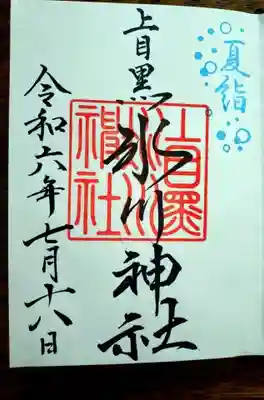 夏詣
上目黒氷川神社
令和六年七月十八日
上目黒氷川神社